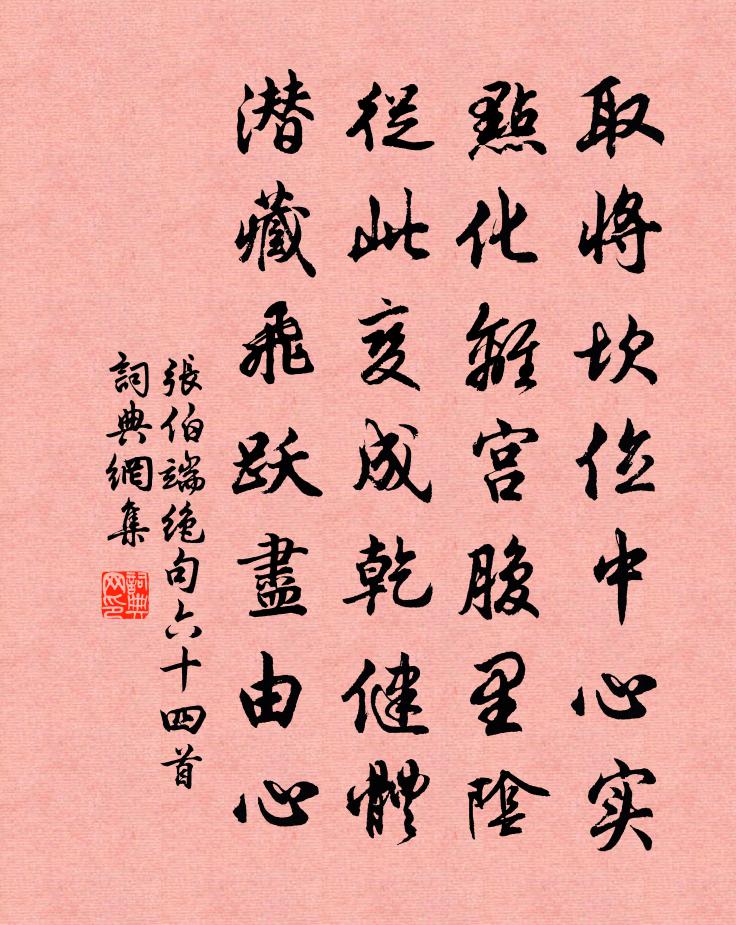 取將坎位中心实
點化離宫腹里陰
從此变成乾健體
潜藏飛跃盡由心
張伯端绝句六十四首
詞典網集
詞典网印